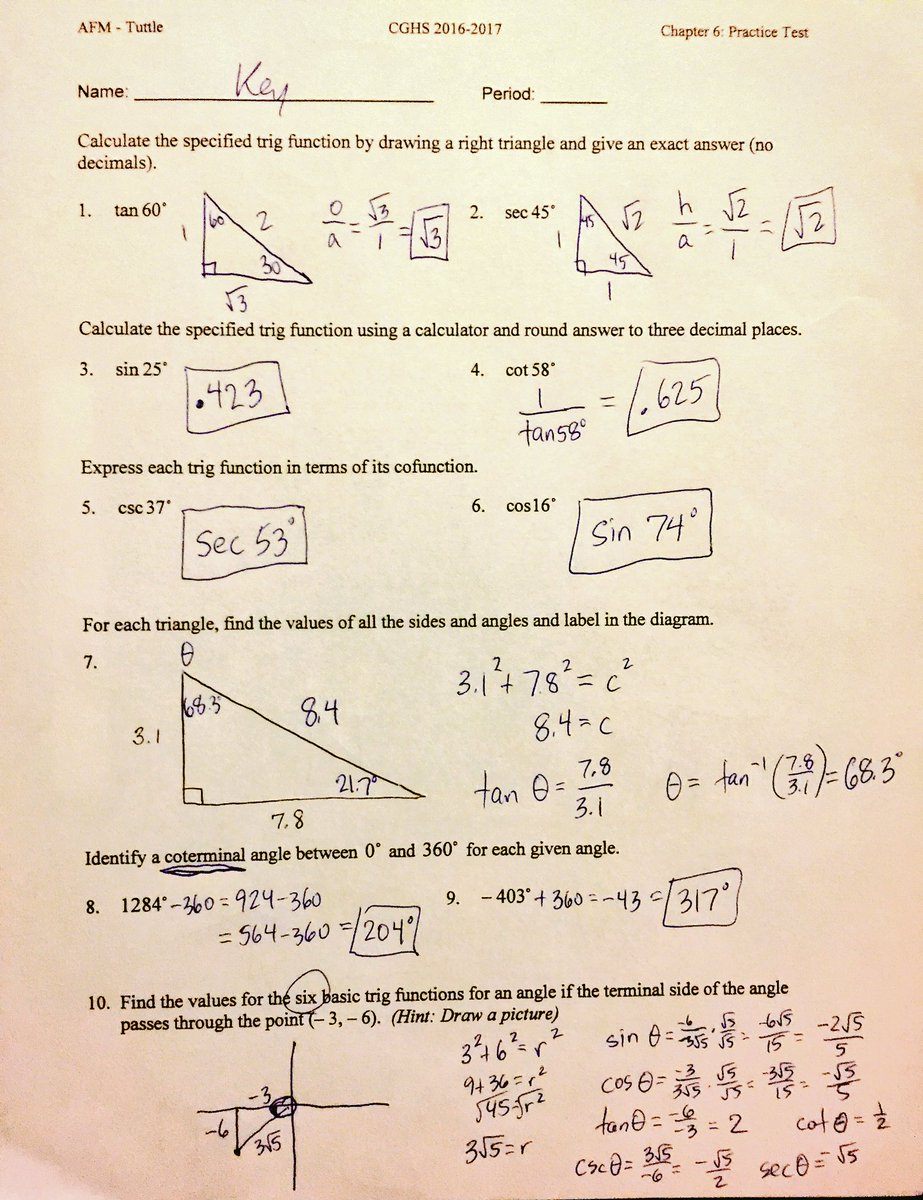 AFM - Tuttle CGHS 2016-2017 Chapter 6: Practice Test
Name: Key Period:
Calculate the specified trig function by drawing a right triangle and give an exact answer (no
decimals).
1. tan 60° 1 60 2 30 √3 o/a = √3/1 = √3
2. sec 45° 1 45 √2 45 1 h/a = √2/1 = √2
Calculate the specified trig function using a calculator and round answer to three decimal places.
3. sin 25° .423
4. cot 58° 1/tan58° = .625
Express each trig function in terms of its cofunction.
5. csc 37° sec 53°
6. cos16° sin 74°
For each triangle, find the values of all the sides and angles and label in the diagram.
7. θ 68.3° 3.1 8.4 21.7° 7.8
3.1² + 7.8² = c²
8.4 = c
tan θ = 7.8/3.1 θ = tan⁻¹(7.8/3.1) = 68.3°
Identify a coterminal angle between 0° and 360° for each given angle.
8. 1284° -360 = 924-360
= 564-360 = 204°
9. -403° + 360 = -43 = 317°
10. Find the values for the six basic trig functions for an angle if the terminal side of the angle
passes through the point (-3, -6). (Hint: Draw a picture)
-3
-6 3√5
3² + 6² = r²
9 + 36 = r²
√45 = √r²
3√5 = r
sin θ = -6/3√5 · √5/√5 = -6√5/15 = -2√5/5
cos θ = -3/3√5 · √5/√5 = -3√5/15 = -√5/5
tan θ = -6/-3 = 2 cot θ = 1/2
csc θ = 3√5/-6 = -√5/2 sec θ = -√5